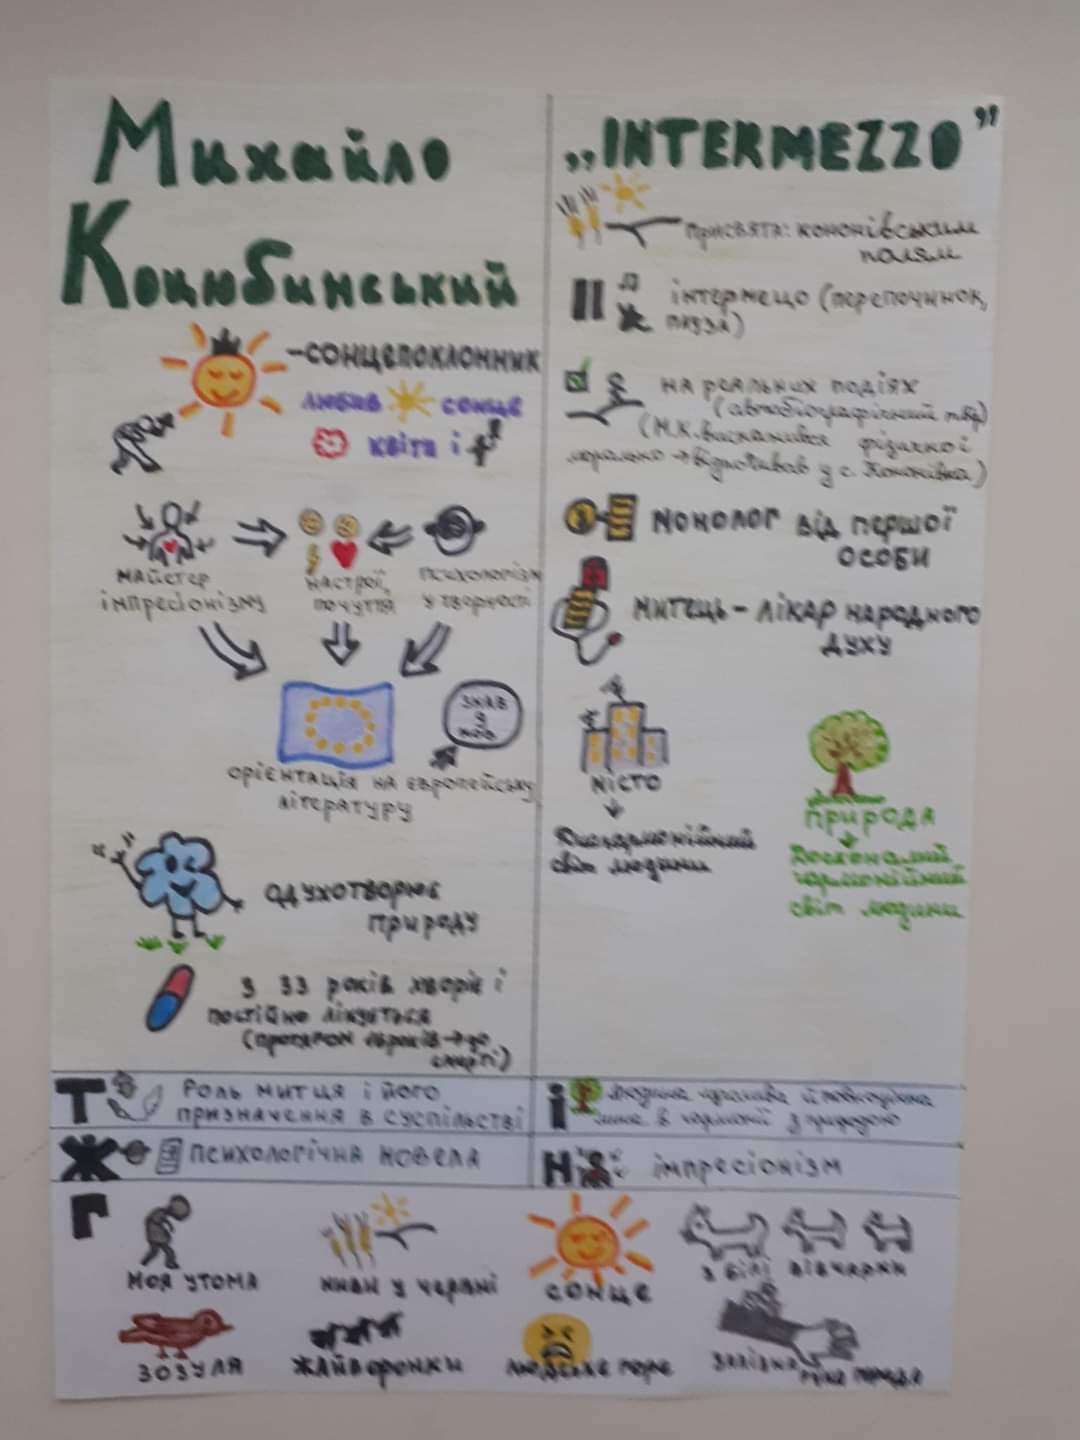 Михайло
Коцюбинський
-сонцепоклонник
любив сонце
квіти і
майстер
імпресіонізму
настрої,
почуття
психологізм
у творчості
знав
9
мов
орієнтація на європейську
літературу
одухотворює
природу
з 33 років хворіє і
постійно лікується
(протягом років → до
смерті)
„INTERMEZZO”
присвята: кононівським
полям
інтермецо (перепочинок,
пауза)
на реальних подіях
(автобіографічний твір)
(М.К. виснажився фізично і
морально → відпочивав у с. Кононівка)
монолог від першої
особи
митець - лікар народного
духу
місто
Дисгармонійний
світ людини
природа
Досконалий,
гармонійний
світ людини
Т Роль митця і його
призначення в суспільстві
і людина красива й повноцінна
лише в гармонії з природою
Ж психологічна новела
Н імпресіонізм
Г
моя утома
ниви у червні
сонце
3 білі вівчарки
зозуля
жайворонки
людське горе
залізна
рука города